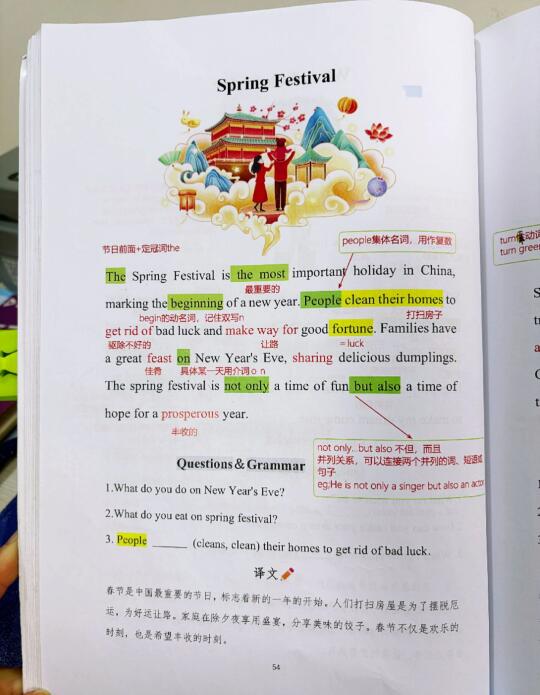 Spring Festival
节日前面+定冠词the
people集体名词，用作复数
The Spring Festival is the most important holiday in China,
最重要的
marking the beginning of a new year. People clean their homes to
begin的动名词，记住双写n
打扫房子
get rid of bad luck and make way for good fortune. Families have
驱除不好的
让路
=luck
a great feast on New Year's Eve, sharing delicious dumplings.
佳肴
具体某一天用介词on
The spring festival is not only a time of fun but also a time of
hope for a prosperous year.
丰收的
not only...but also 不但，而且
并列关系，可以连接两个并列的词、短语或
句子
eg:He is not only a singer but also an actor
Questions＆Grammar
1.What do you do on New Year's Eve?
2.What do you eat on spring festival?
3. People ______ (cleans, clean) their homes to get rid of bad luck.
译文
春节是中国最重要的节日，标志着新的一年的开始。人们打扫房屋是为了摆脱厄
运，为好运让路。家庭在除夕夜享用盛宴，分享美味的饺子。春节不仅是欢乐的
时刻，也是希望丰收的时刻。
54
turn
turn green